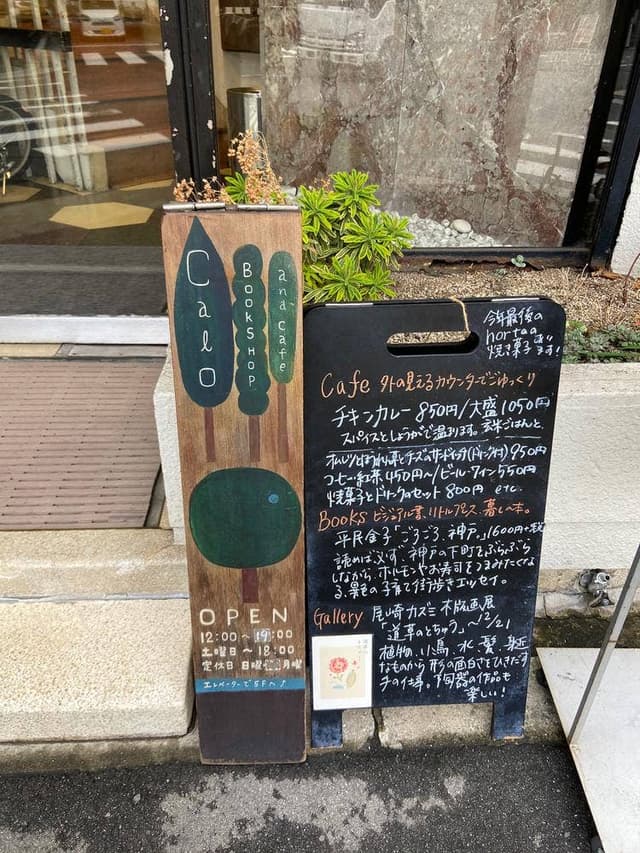 Calo
BOOKSHOP
and cafe
OPEN
12:00〜19:00
土曜日〜18:00
定休日 日曜 月曜
エレベーターで5Fへ↑
今年最後の
hortaa
焼き菓子
ます!
Cafe 外の見えるカウンターでごゆっくり
チキンカレー 850円/大盛1050円
スパイスとしょうがで温まります。玄米ごはんと。
ほうれん草とチーズのサンドイッチ(ドリンク付)950円
コーヒー紅茶450円〜/ビール・ワイン550円
焼菓子とドリンクのセット 800円 etc.
Books ビジュアル書、リトルプレス、暮しの本。
平民金子「ごろごろ、神戸。」1600円+税
読めば必ず、神戸の下町をぶらぶら
しながら、ホルモンやお寿司をつまみたくな
る、異色の子育て街歩きエッセイ。
Gallery 尾崎カズミ 木版画展
「道草のとちゅう」〜12/21
植物、小鳥、水、髪、身近
なものから形の面白さをひきだす
手の仕事。陶器の作品も
楽しい!